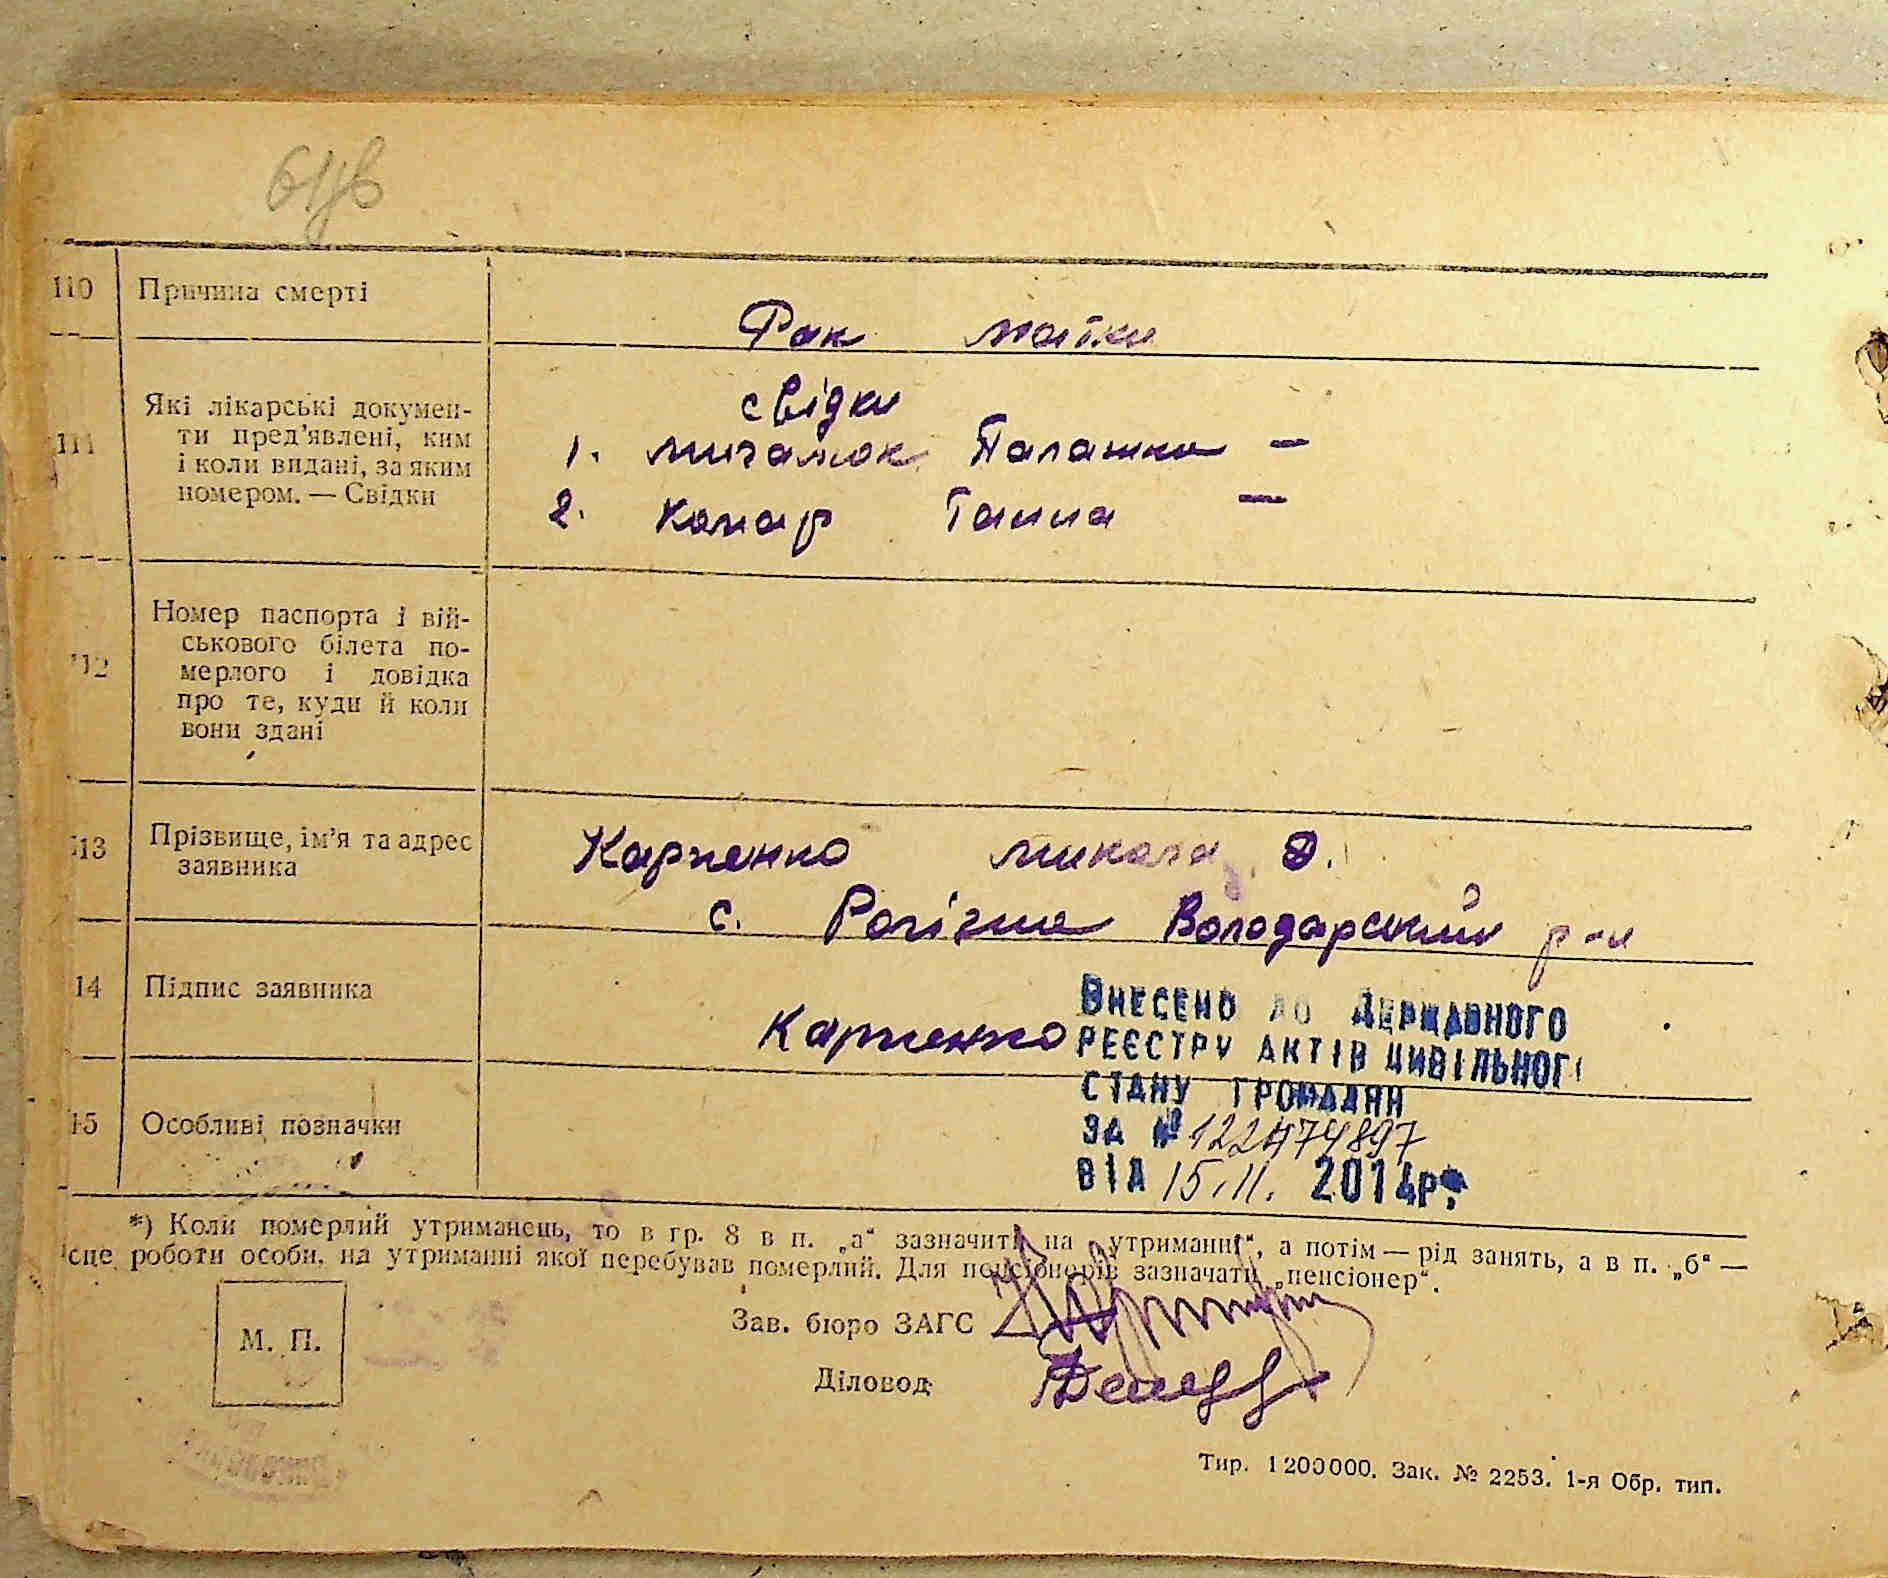 110 Причина смерті
Рак матки
111 Які лікарські докумен-
ти пред'явлені, ким
і коли видані, за яким
номером. — Свідки
свідки
1. Палажка —
2. Комар Ганна —
112 Номер паспорта і вій-
ськового білета по-
мерлого і довідка
про те, куди й коли
вони здані
113 Прізвище, ім'я та адрес
заявника
Карпенко Микола Д.
с. Рогізна Володарський р-н
14 Підпис заявника
Карпенко
15 Особливі позначки
Внесено до Державного
реєстру актів цивільног
стану громадян
за № 122474897
від 15.11. 2014р.
*) Коли померлий утриманець, то в гр. 8 в п. „а“ зазначити „на утриманні“, а потім — рід занять, а в п. „б“ —
ісце роботи особи, на утриманні якої перебував померлий. Для пенсіонерів зазначати „пенсіонер“.
Зав. бюро ЗАГС
М. П.
Діловод
Тир. 1200000. Зак. № 2253. 1-я Обр. тип.